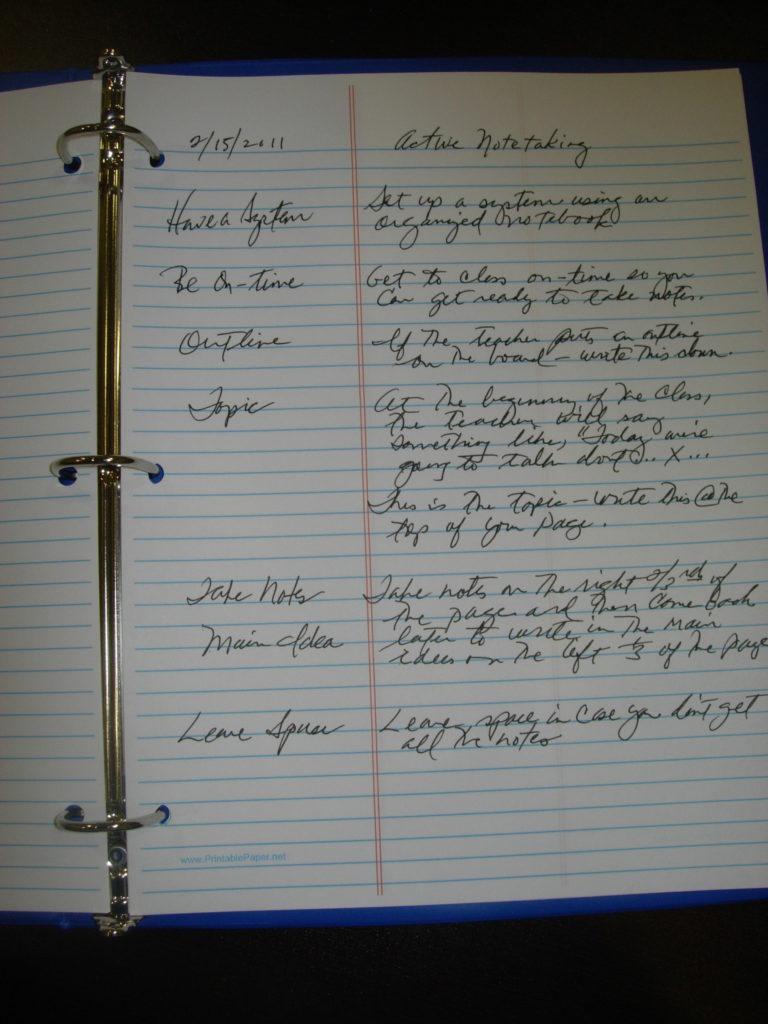 2/15/2011 Active Notetaking
Have a System Set up a system using an
organized notebook
Be On-time Get to class on-time so you
can get ready to take notes.
Outline If the teacher puts an outline
on the board - write this down.
Topic At the beginning of the class,
the teacher will say
something like, "Today we're
going to talk about... X...
This is the topic - write this @ the
top of your page.
Take Notes Take notes on the right 2/3rds of
the page and then come back
Main Idea later to write in the main
ideas on the left 1/3 of the page
Leave Space Leave space in case you don't get
all the notes
www.PrintablePaper.net